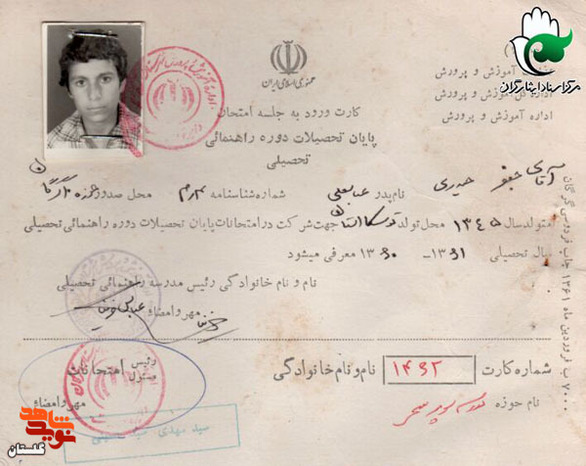 مرکز اسناد ایثارگران
جمهوری اسلامی ایران
آموزش و پرورش
اداره کل آموزش و پرورش
اداره آموزش و پرورش
کارت ورود به جلسه امتحان
پایان تحصیلات دوره راهنمائی
تحصیلی
آقای جعفر حیدری نام پدر عباسعلی شماره شناسنامه محل صدور
متولد سال ۱۳۴۵ محل تولد جهت شرکت در امتحانات پایان تحصیلات دوره راهنمائی تحصیلی
سال تحصیلی ۱۳۶۱ - ۱۳۶۰ معرفی میشود
نام و نام خانوادگی رئیس مدرسه راهنمائی تحصیلی
مهر و امضاء
شماره کارت ۱۴۶۲ نام و نام خانوادگی
رئیس
مسئول
امتحانات
نام حوزه
مهر و امضاء
۷۰۰۰ ب فروردین ماه ۱۳۶۱ چاپ فردوسی گرگان
نوید شاهد
گلستان